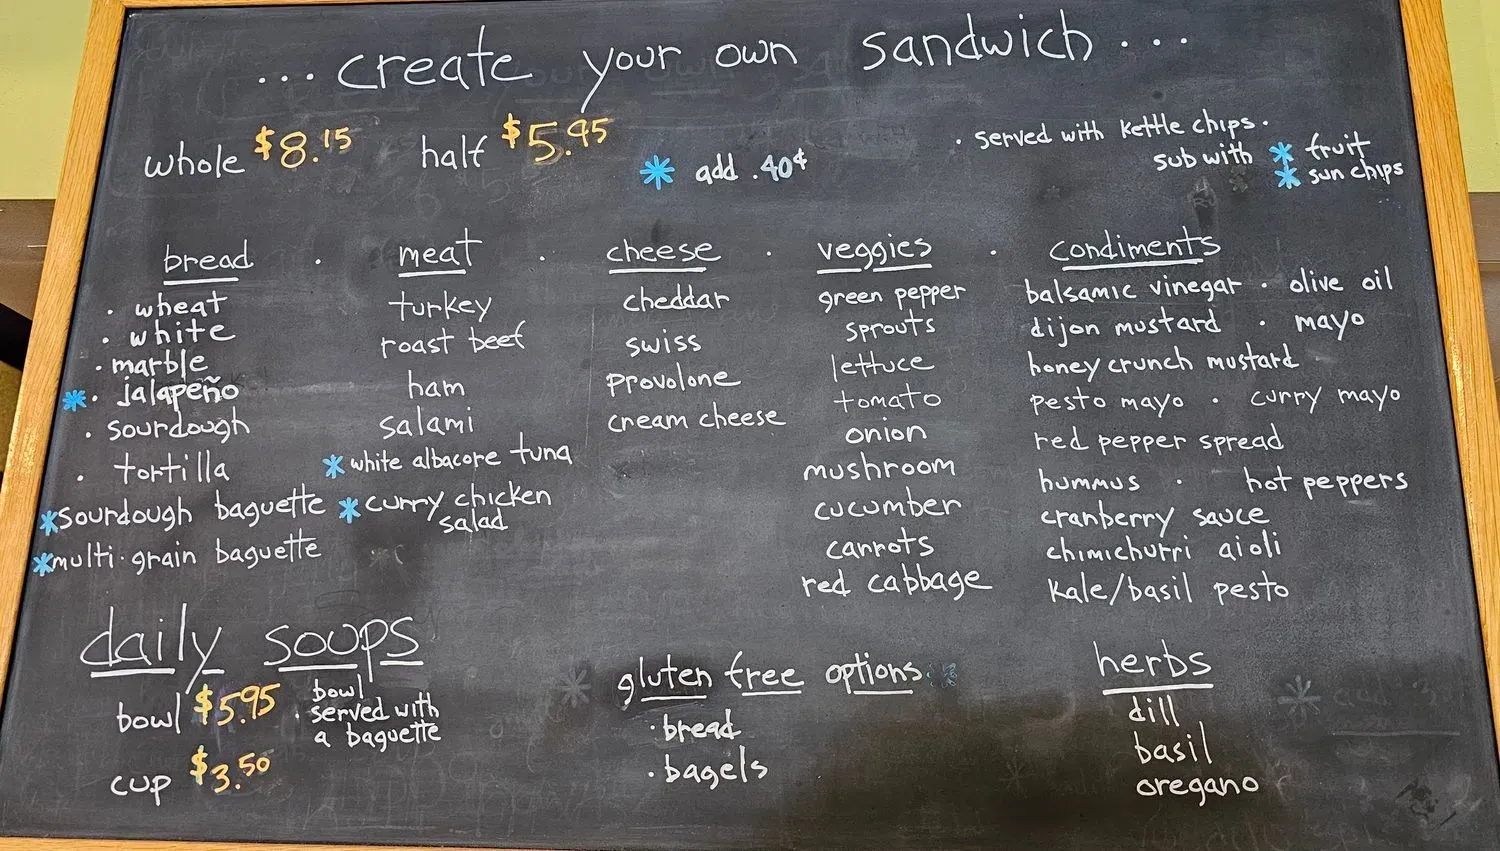 ... create your own sandwich ...
whole $8.15 half $5.95
* add .40¢
· served with kettle chips ·
sub with * fruit
* sun chips
bread · meat · cheese · veggies · condiments
· wheat
· white
· marble
* · jalapeño
· sourdough
· tortilla
* sourdough baguette
* multi-grain baguette
turkey
roast beef
ham
salami
* white albacore tuna
* curry chicken
salad
cheddar
swiss
provolone
cream cheese
green pepper
sprouts
lettuce
tomato
onion
mushroom
cucumber
carrots
red cabbage
balsamic vinegar · olive oil
dijon mustard · mayo
honey crunch mustard
pesto mayo · curry mayo
red pepper spread
hummus · hot peppers
cranberry sauce
chimichurri aioli
kale/basil pesto
daily soups
bowl $5.95
· bowl
served with
a baguette
cup $3.50
gluten free options
· bread
· bagels
herbs
dill
basil
oregano